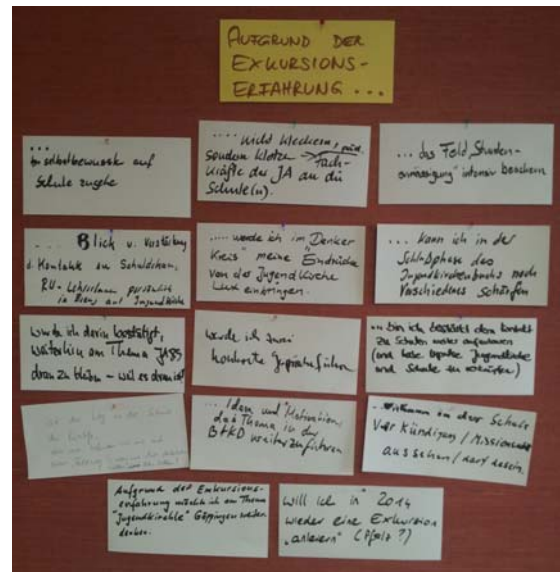 AUFGRUND DER
EXKURSIONS-
ERFAHRUNG ...
...
selbstbewusst auf
Schule zugehe
.... nicht kleckern,
sondern klotzen → Fach-
kräfte der JA an die
Schule(n).
... das Feld
intensiv beackern
... Blick u. Verstärkung
d. Kontakte zu Schuldekan,
RU-LehrerInnen persönlich
in Bezug auf Jugendkirche
..... werde ich im "Denker
Kreis" meine Eindrücke
von der Jugendkirche
Lux einbringen.
... kann ich in der
Schlußphase des
Jugendkirchenbuchs noch
Verschiedenes schärfen
wurde ich darin bestätigt,
weiterhin am Thema
dran zu bleiben – weil es dran ist
werde ich zwei
konkrete Gespräche führen
... bin ich bestärkt den Kontakt
zu Schulen weiter auszubauen
(und habe Impulse Jugendkirche
und Schule zu verknüpfen)
... Ideen und Motivation
das Thema in der
weiterzuführen
in der Schule
Verkündigung / Mission
aussehen / darf sein.
Aufgrund der Exkursions-
erfahrung möchte ich am Thema
"Jugendkirche" Göppingen weiter
denken.
will ich in 2014
wieder eine Exkursion
"anleiern" (Pfalz?)